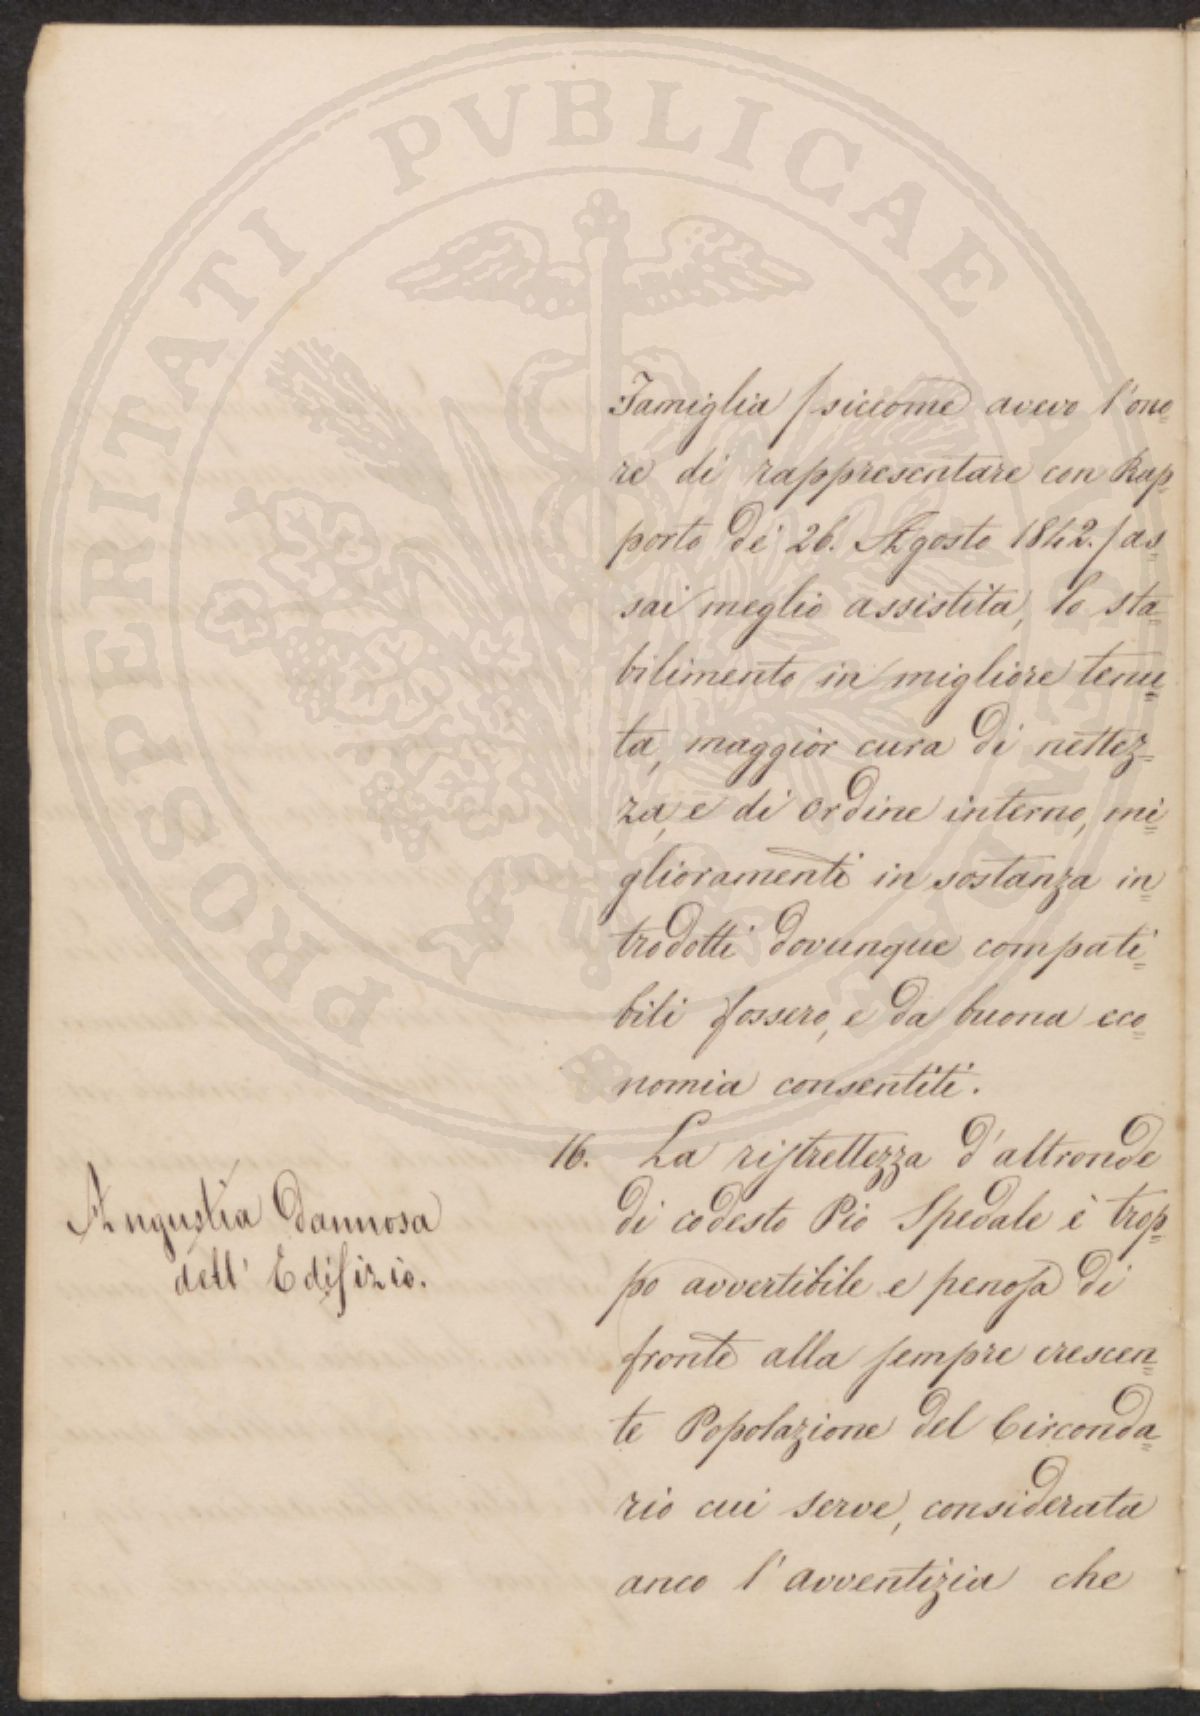 PROSPERITATI PVBLICAE AVGENDAE
Famiglia /siccome avevo l'ono=
re di rappresentare con Rap=
porto de' 26. Agosto 1842./ as=
sai meglio assistita, lo sta=
bilimento in migliore tenu=
ta, maggior cura di nettez=
za, e di ordine interno, mi=
glioramenti in sostanza in=
trodotti dovunque compati=
bili fossero, e da buona eco=
nomia consentiti.
16. La ristrettezza d'altronde
di codesto Pio Spedale è trop=
po avvertibile e penosa di
fronte alla sempre crescen=
te Popolazione del Circonda=
rio cui serve, considerata
anco l'avventizia che
Angustia dannosa
dell' Edifizio.